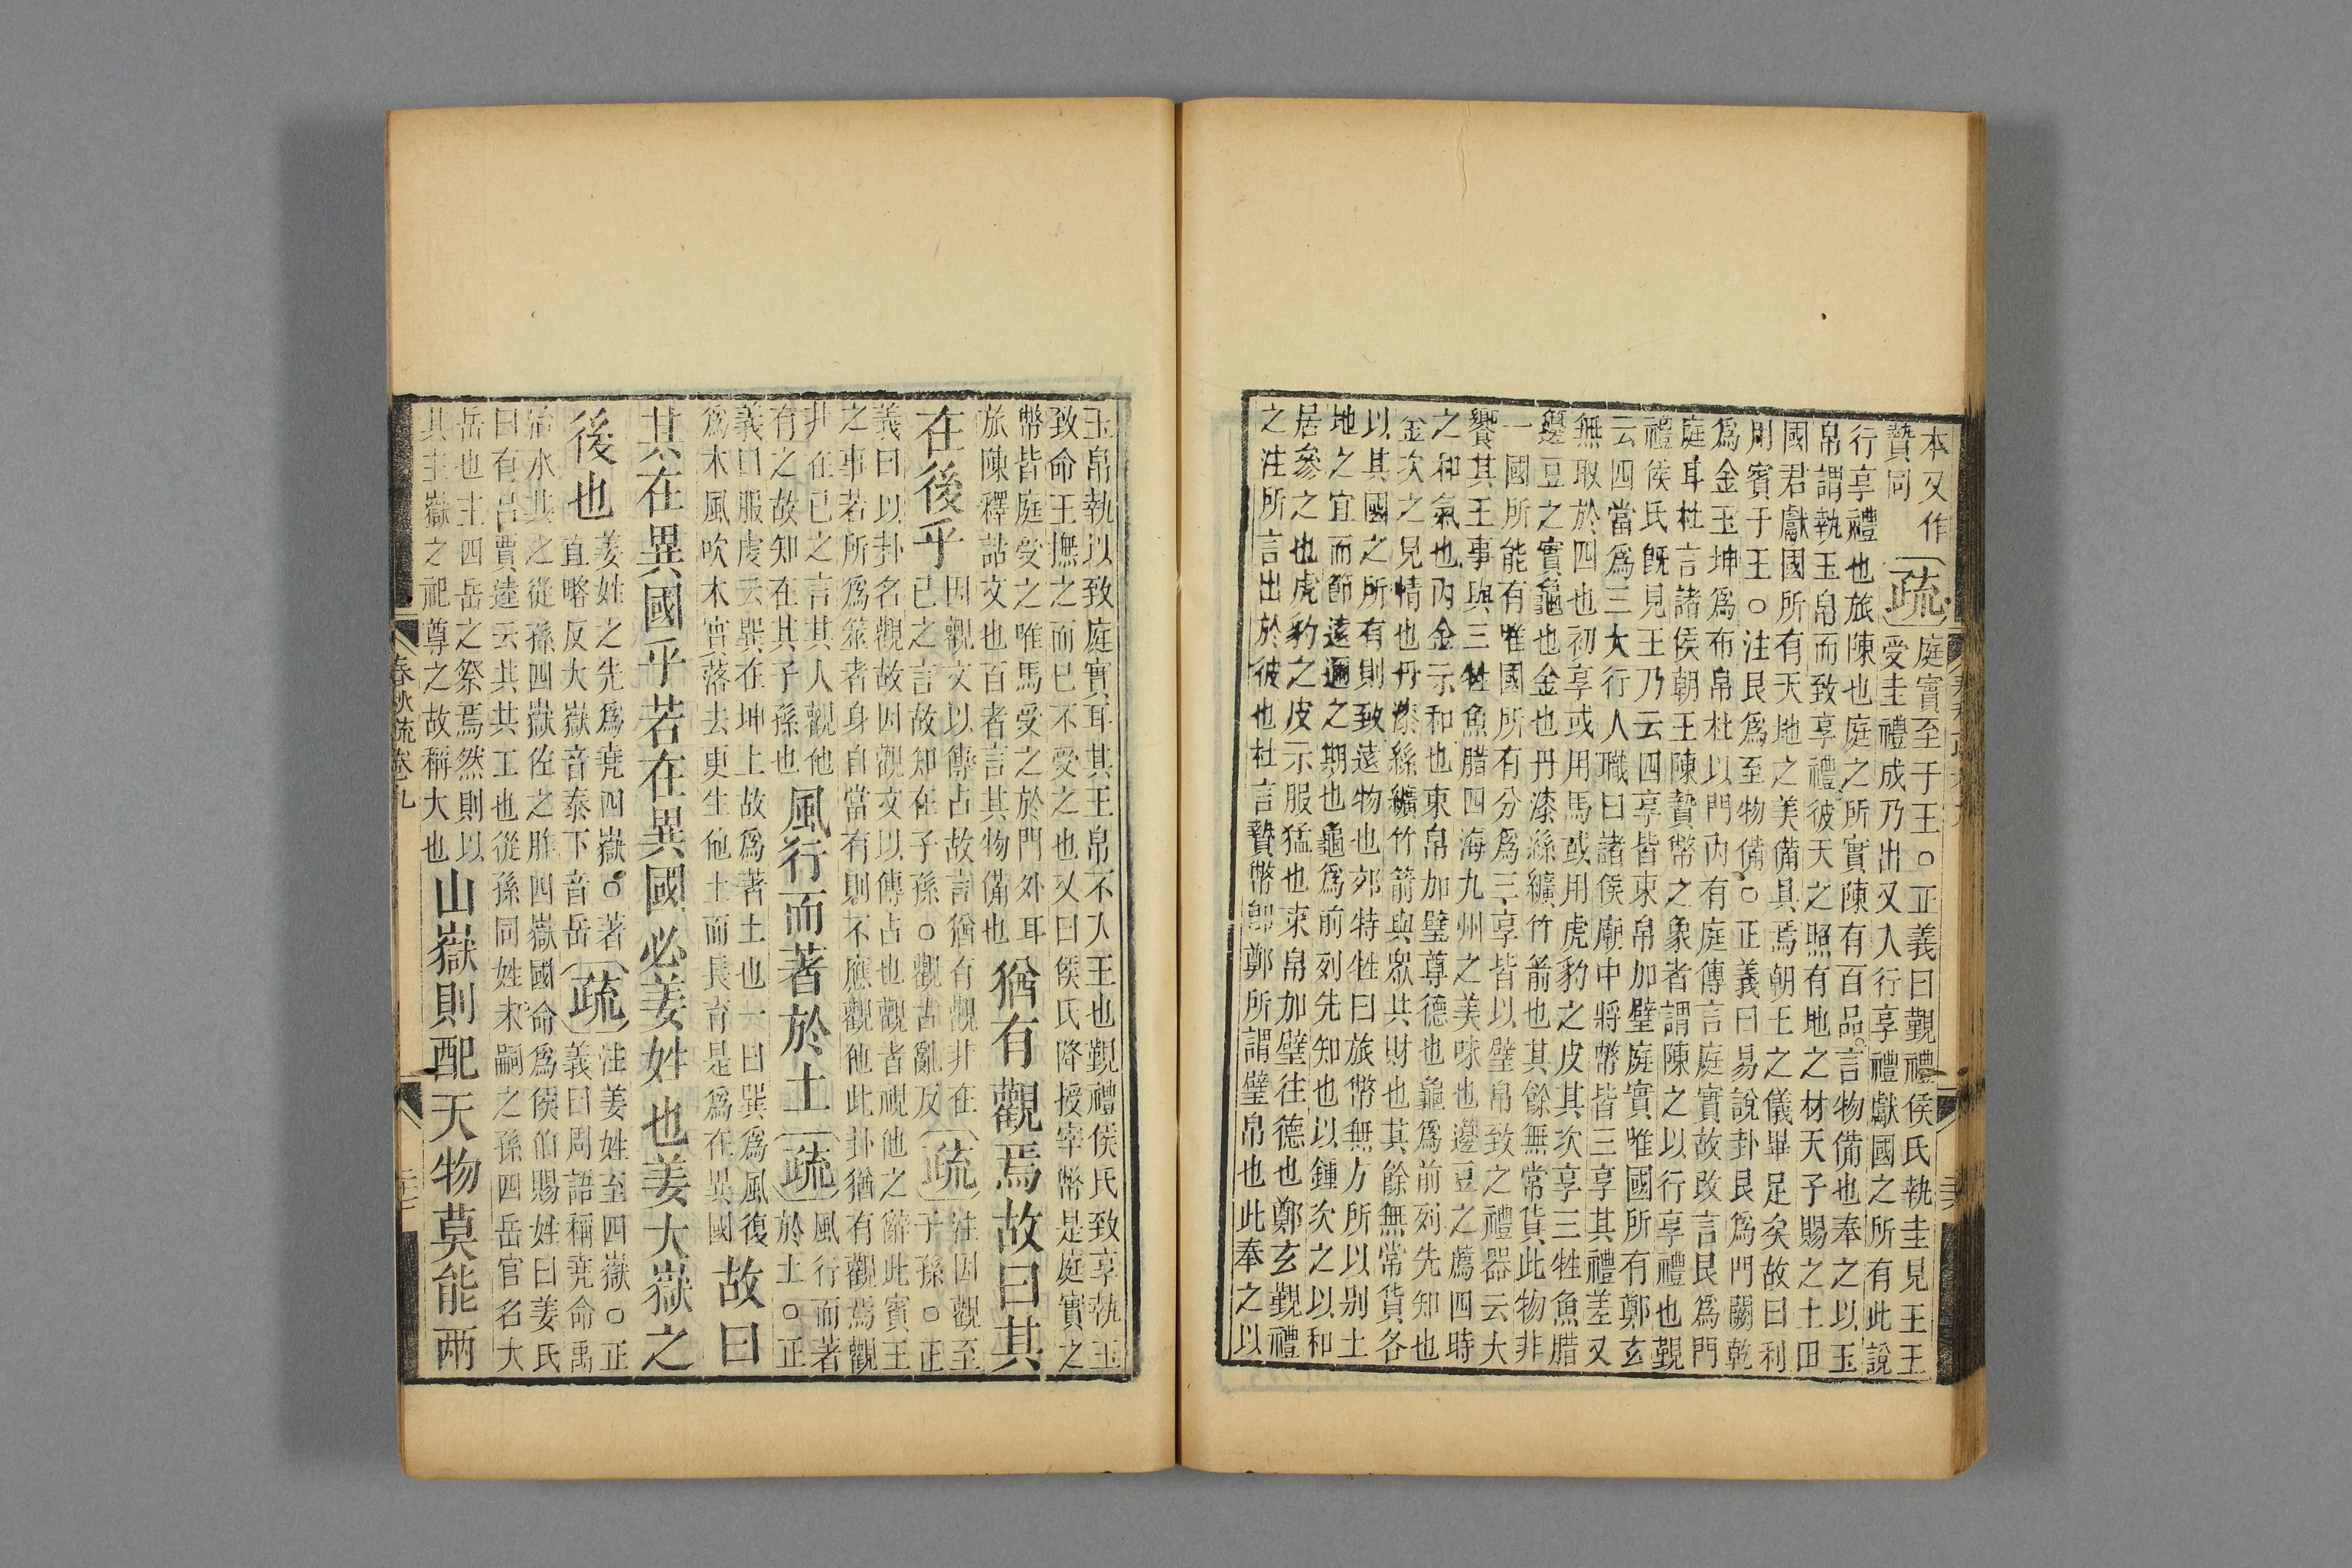 本又作
贄同
疏
庭實至于王○正義曰覲禮侯氏執圭見王王
受圭禮成乃出又入行享禮獻國之所有此說
行享禮也旅陳也庭之所實陳有百品言物備也奉之以玉
帛謂執玉帛而致享禮彼天之照有地之材天子賜之土田
國君獻國所有天地之美備具焉朝王之儀畢足矣故曰利
用賓于王○注艮爲至物備○正義曰易說卦艮爲門闕乾
爲金玉坤爲布帛杜以門內有庭傳言庭實故改言艮爲門
庭耳杜言諸侯朝王陳贄幣之象者謂陳之以行享禮也覲
禮侯氏旣見王乃云四享皆束帛加璧庭實唯國所有鄭玄
云四當爲三大行人職曰諸侯廟中將幣皆三享其禮差又
無取於四也初享或用馬或用虎豹之皮其次享三牲魚腊
籩豆之實龜也金也丹漆絲纊竹箭也其餘無常貨此物非
一國所能有唯國所有分爲三享皆以璧帛致之禮器云大
饗其王事與三牲魚腊四海九州之美味也籩豆之薦四時
之和氣也內金示和也束帛加璧尊德也龜爲前列先知也
金次之見情也丹漆絲纊竹箭與眾共財也其餘無常貨各
以其國之所有則致遠物也郊特牲曰旅幣無方所以別土
地之宜而節遠邇之期也龜爲前列先知也以鍾次之以和
居參之也虎豹之皮示服猛也束帛加璧往德也鄭玄覲禮
之注所言出於彼也杜言贄幣卽鄭所謂璧帛也此奉之以
玉帛執以致庭實耳其王帛不入王也覲禮侯氏致享執玉
致命王撫之而已不受之也又曰侯氏降授宰幣是庭實之
幣皆庭受之唯馬受之於門外耳
旅陳釋詁文也百者言其物備也
猶有觀焉故曰其
在後乎
因觀文以傳占故言猶有觀非在
已之言故知在子孫○觀古亂反
疏
注因觀至
子孫○正
義曰以卦名觀故因觀文以傳占也觀者視他之辭此賓王
之事若所爲筮者身自當有則不應觀他此卦猶有觀焉觀
非在已之言其人觀他
有之故知在其子孫也
風行而著於土
疏
風行而著
於土○正
義曰服虔云巽在坤上故爲著土也一曰巽爲風復
爲木風吹木實落去更生他土而長育是爲在異國
故曰
其在異國乎若在異國必姜姓也姜大嶽之
後也
姜姓之先爲堯四嶽○著
直略反大嶽音泰下音岳
疏
注姜姓至四嶽○正
義曰周語稱堯命禹
治水共之從孫四嶽佐之胙四嶽國命爲侯伯賜姓曰姜氏
曰有呂賈逵云共共工也從孫同姓末嗣之孫四岳官名大
岳也主四岳之祭焉然則以
其主嶽之祀尊之故稱大也
山嶽則配天物莫能兩
春秋疏卷九